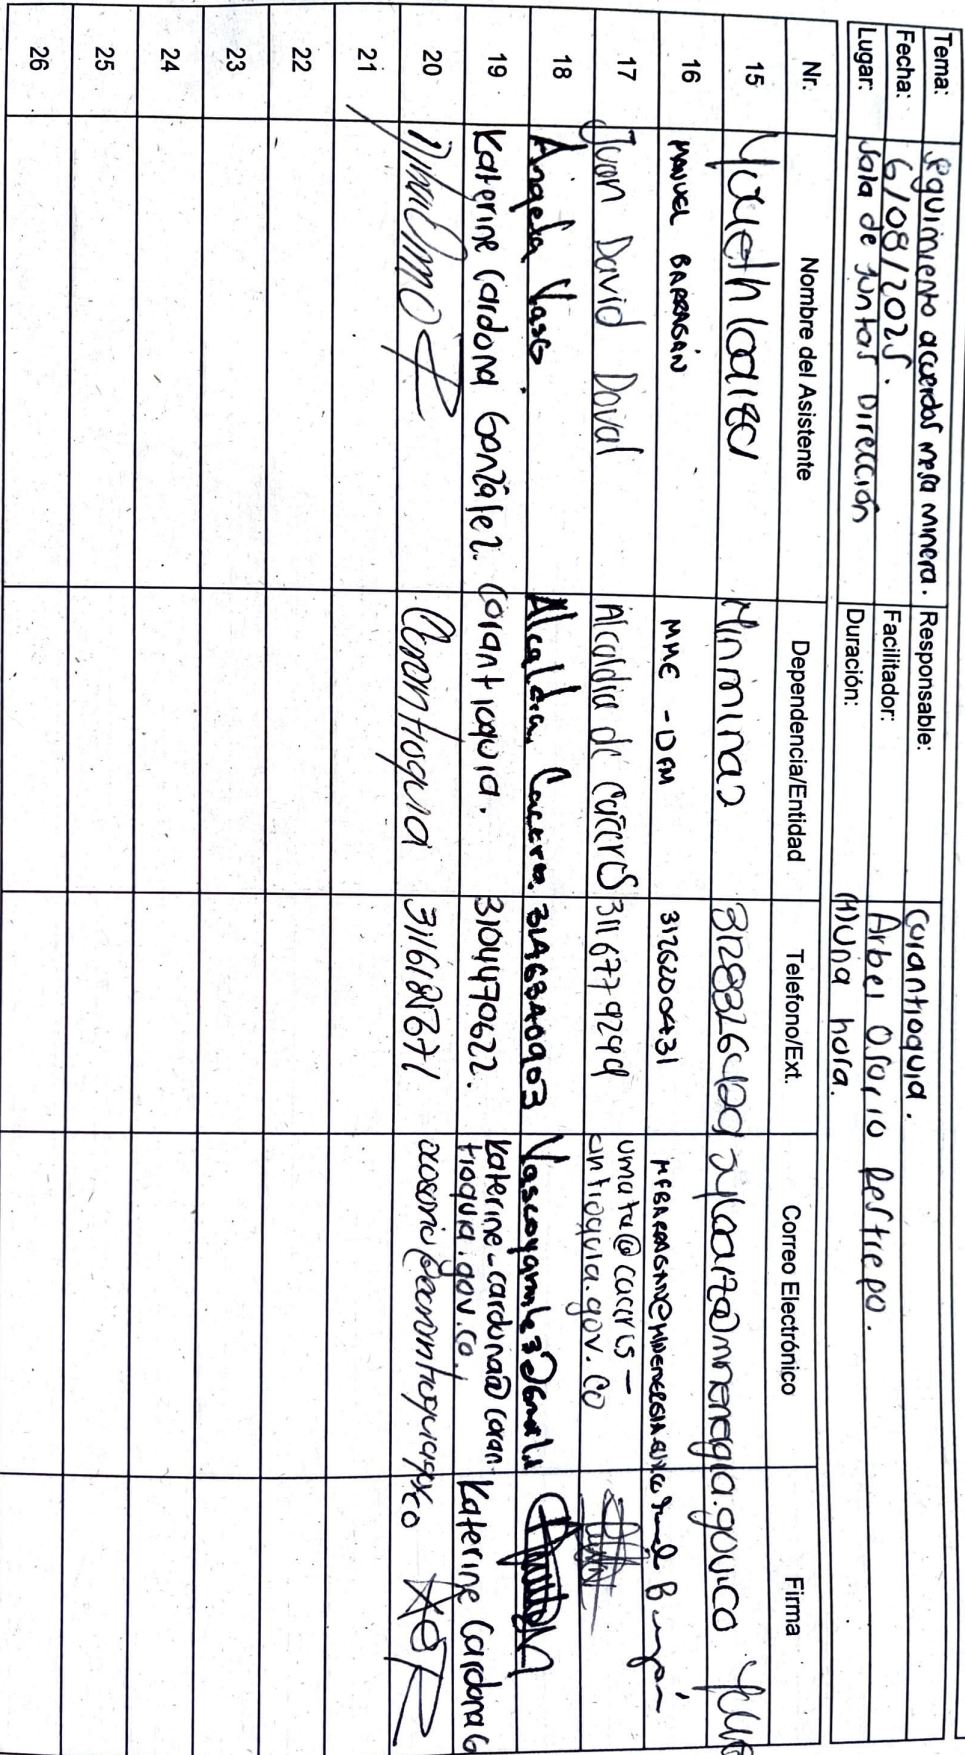 Tema: Seguimiento acuerdos mesa minera. Responsable: Corantioquia.
Fecha: 6/08/2025. Facilitador: Arbei Osorio Restrepo.
Lugar: Sala de juntas Dirección Duración: (H) Una hora.
Nr. Nombre del Asistente Dependencia/Entidad Telefono/Ext. Correo Electrónico Firma
15 Minminas
16 MANUEL BARRAGÁN MME - DFM 3126200431
17 Juan David Doval Alcaldia de Caceres 311677 umata@caceres-
antioquia.gov.co
18 Angela Vasco. Alcaldia Caceres. 3146340903
19 Katerine Cardona González. Corantioquia. 3104470622. Katerine-cardona@coran-
tioquia.gov.co. Katerine Cardona G
20 Corantioquia 3116181671
21
22
23
24
25
26